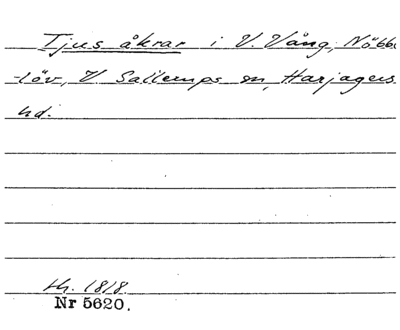 Tjus åkrar i V. Vång, Nöbbe
-löv, V. Sallerups sn, Harjagers
hd.
th. 1818.
Nr 5620.